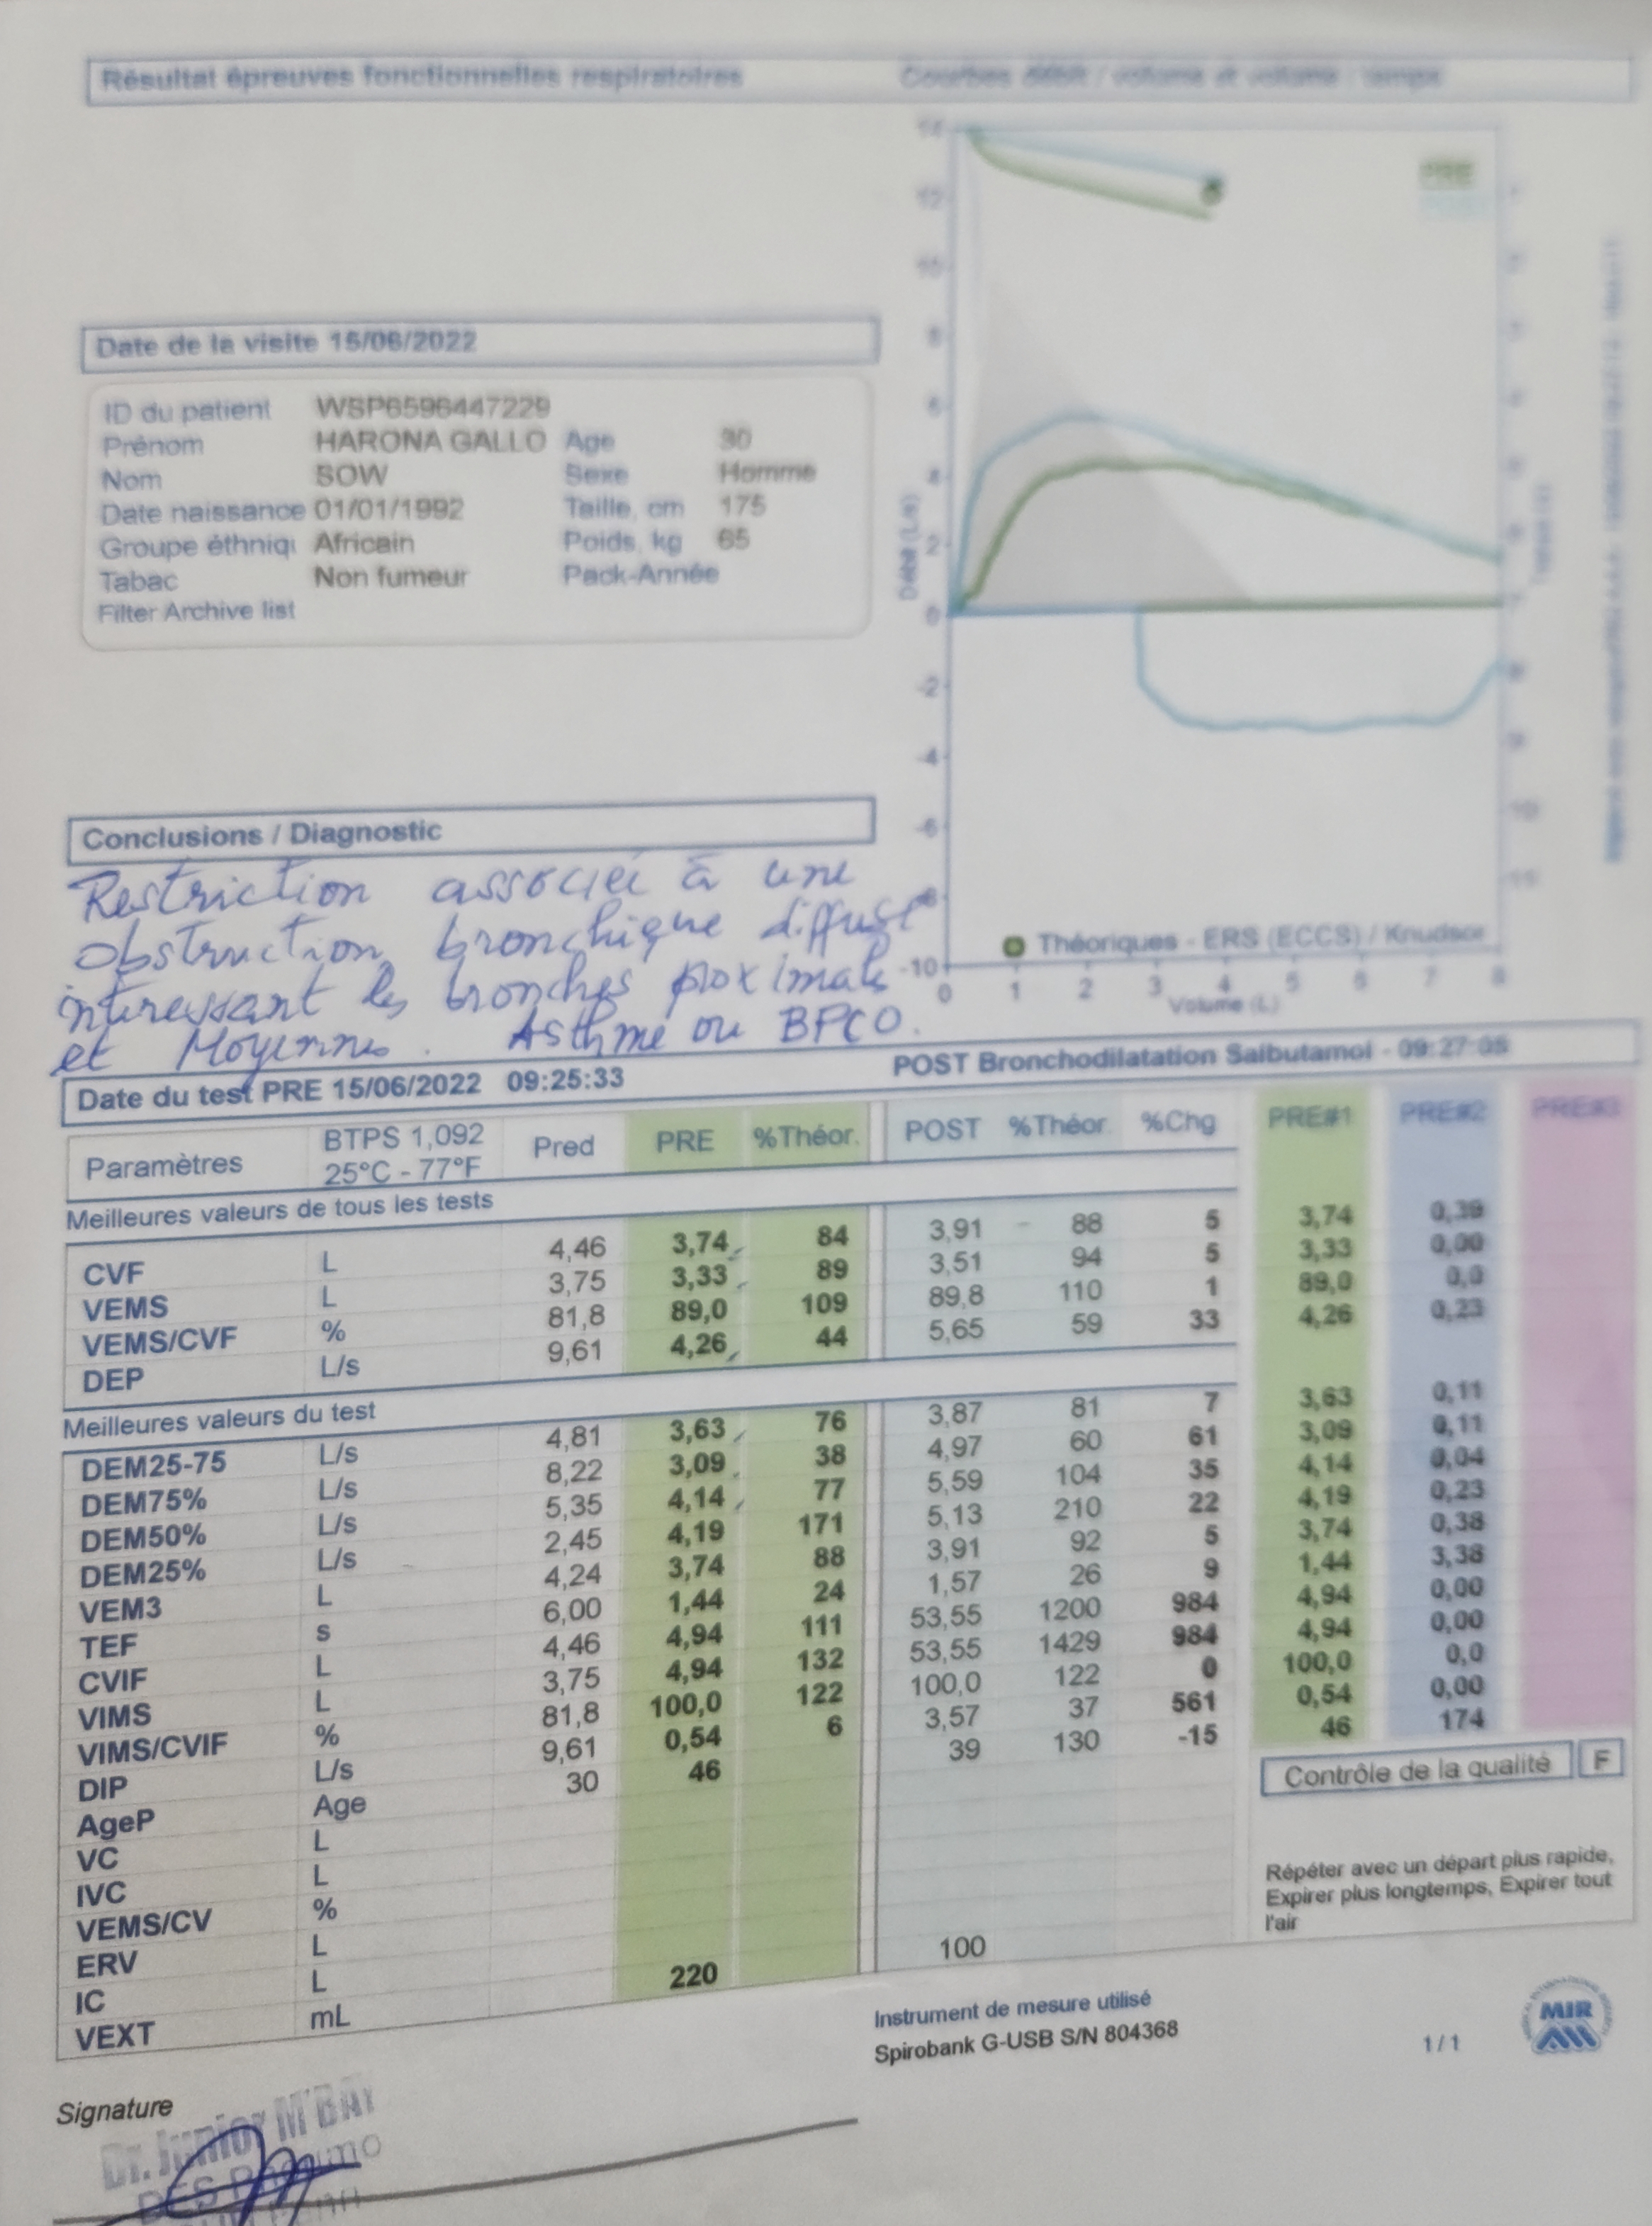 Résultat épreuves fonctionnelles respiratoires
Courbes débit / volume et volume / temps
Date de la visite 15/06/2022
ID du patient WSP6596447229
Prénom HARONA GALLO Age 30
Nom SOW Sexe Homme
Date naissance 01/01/1992 Taille, cm 175
Groupe éthniqu Africain Poids, kg 65
Tabac Non fumeur Pack-Année
Filter Archive list
PRE
14
12
10
8
6
4
2
0
-2
-4
-6
-8
-10
Débit (L/s)
Théoriques - ERS (ECCS) / Knudson
0 1 2 3 4 5 6 7 8
Volume (L)
Conclusions / Diagnostic
Restriction associée à une
obstruction bronchique diffuse
intéressant les bronches proximale
et Moyennes. Asthme ou BPCO.
Date du test PRE 15/06/2022 09:25:33 POST Bronchodilatation Salbutamol - 09:27:05
Paramètres BTPS 1,092 25°C - 77°F Pred PRE %Théor. POST %Théor. %Chg PRE#1 PRE#2 PRE#3
Meilleures valeurs de tous les tests
CVF L 4,46 3,74 84 3,91 88 5 3,74 0,39
VEMS L 3,75 3,33 89 3,51 94 5 3,33 0,00
VEMS/CVF % 81,8 89,0 109 89,8 110 1 89,0 0,0
DEP L/s 9,61 4,26 44 5,65 59 33 4,26 0,23
Meilleures valeurs du test
DEM25-75 L/s 4,81 3,63 76 3,87 81 7 3,63 0,11
DEM75% L/s 8,22 3,09 38 4,97 60 61 3,09 0,11
DEM50% L/s 5,35 4,14 77 5,59 104 35 4,14 0,04
DEM25% L/s 2,45 4,19 171 5,13 210 22 4,19 0,23
VEM3 L 4,24 3,74 88 3,91 92 5 3,74 0,38
TEF s 6,00 1,44 24 1,57 26 9 1,44 3,38
CVIF L 4,46 4,94 111 53,55 1200 984 4,94 0,00
VIMS L 3,75 4,94 132 53,55 1429 984 4,94 0,00
VIMS/CVIF % 81,8 100,0 122 100,0 122 0 100,0 0,0
DIP L/s 9,61 0,54 6 3,57 37 561 0,54 0,00
AgeP Age 30 46 39 130 -15 46 174
VC L
IVC L
VEMS/CV %
ERV L
IC L
VEXT mL 220 100
Contrôle de la qualité F
Répéter avec un départ plus rapide,
Expirer plus longtemps, Expirer tout
l'air
Instrument de mesure utilisé
Spirobank G-USB S/N 804368
1 / 1
MIR
Signature
Dr. Junior M'BAY
DES